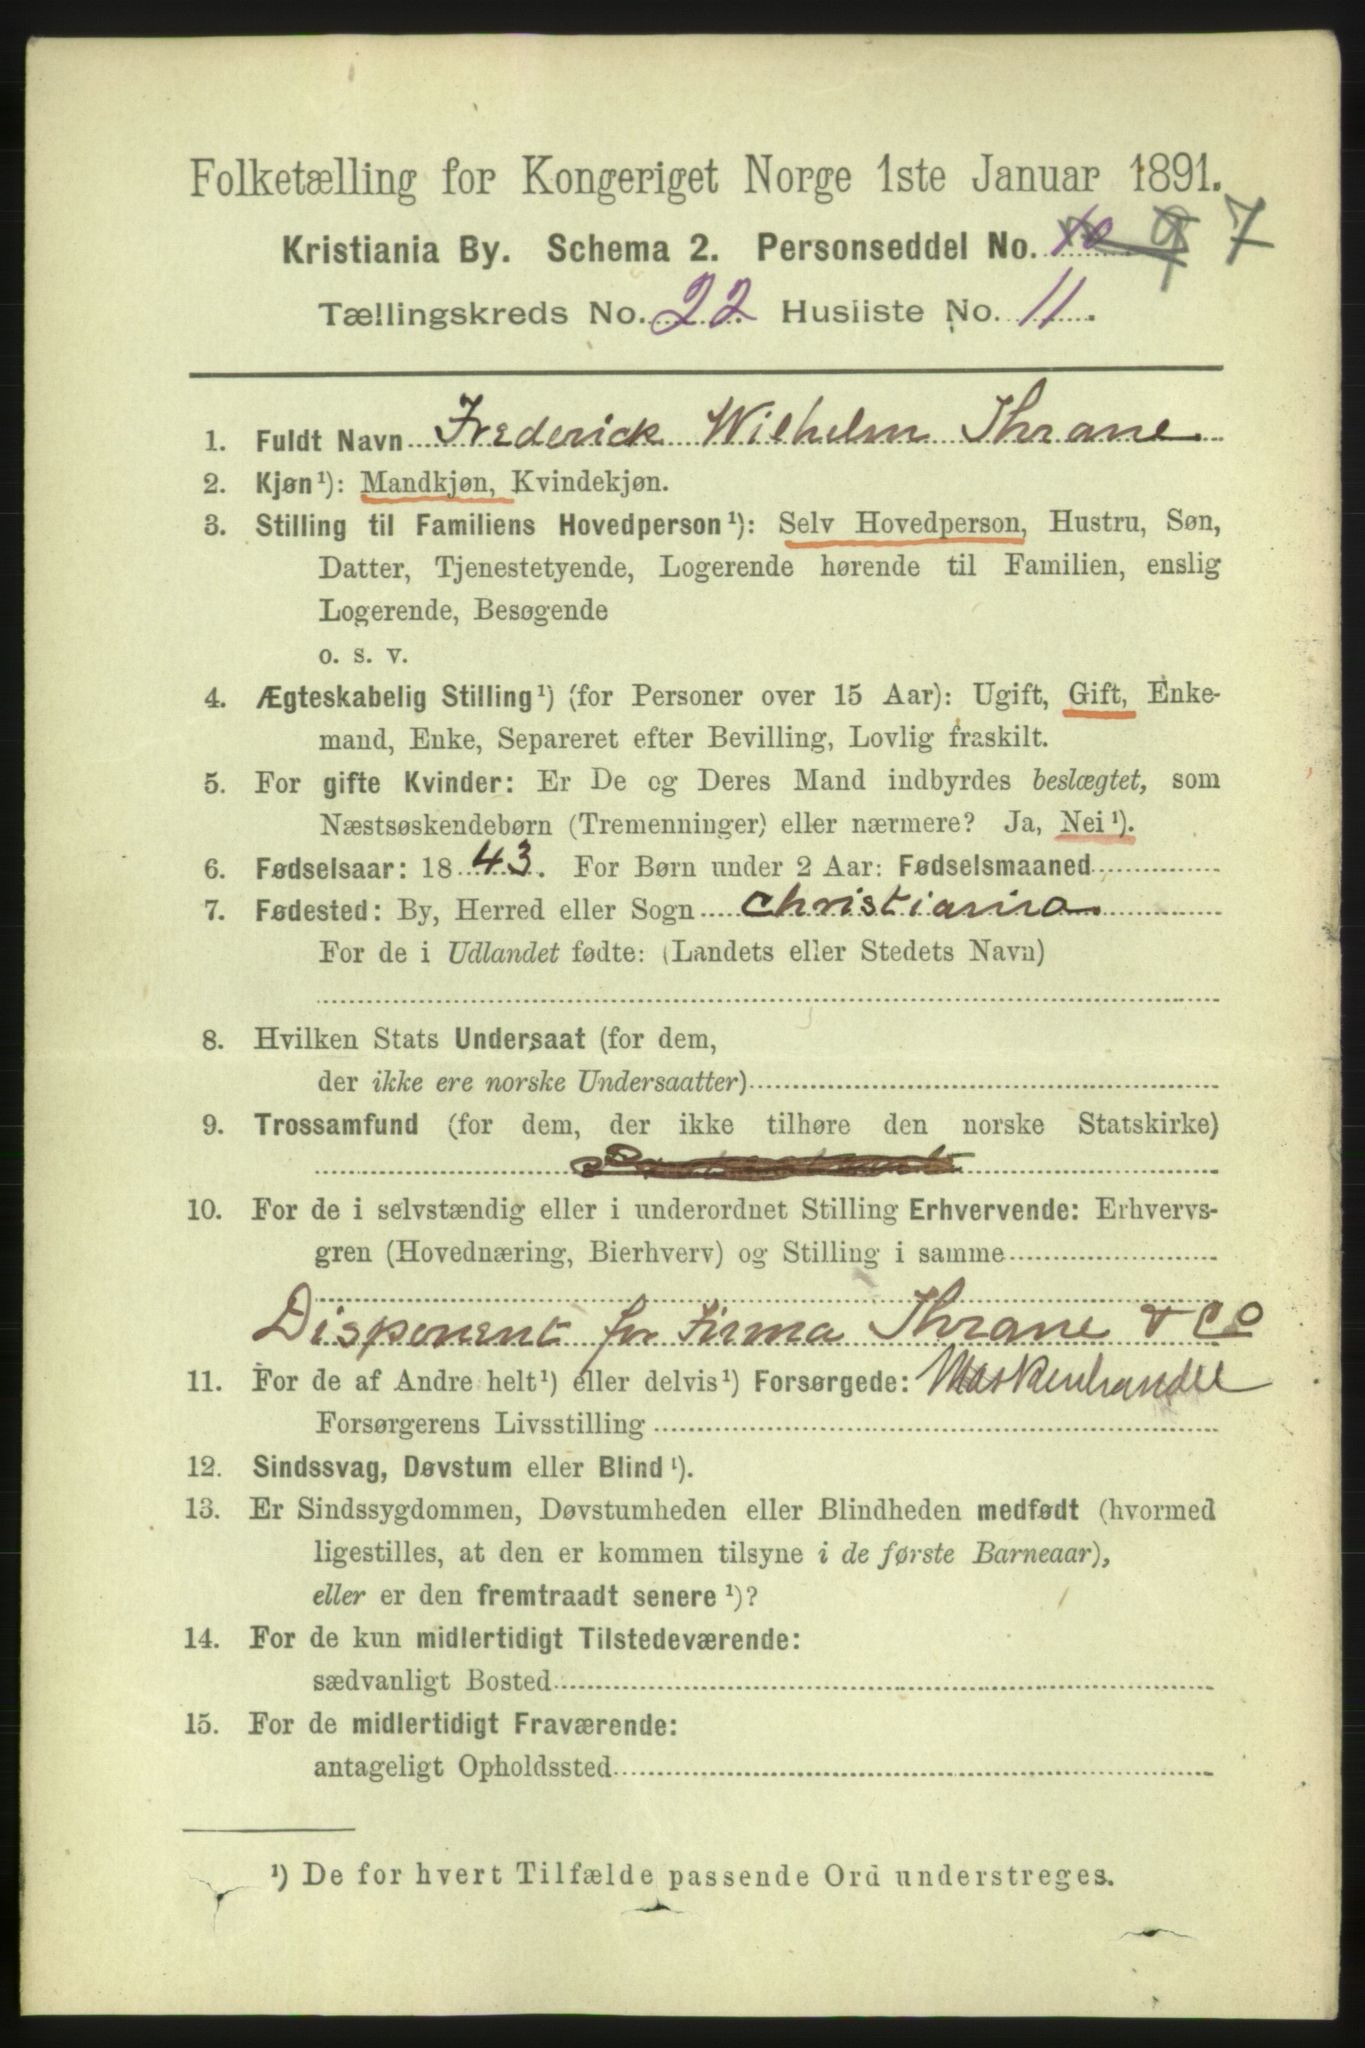 Folketælling for Kongeriget Norge 1ste Januar 1891.
Kristiania By. Schema 2. Personseddel No. 10 9 7
Tællingskreds No. 22 Husliste No. 11.
1. Fuldt Navn Frederick Wilhelm Thrane
2. Kjøn¹): Mandkjøn, Kvindekjøn.
3. Stilling til Familiens Hovedperson¹): Selv Hovedperson, Hustru, Søn,
Datter, Tjenestetyende, Logerende hørende til Familien, enslig
Logerende, Besøgende
o. s. v.
4. Ægteskabelig Stilling¹) (for Personer over 15 Aar): Ugift, Gift, Enke-
mand, Enke, Separeret efter Bevilling, Lovlig fraskilt.
5. For gifte Kvinder: Er De og Deres Mand indbyrdes beslægtet, som
Næstsøskendebørn (Tremenninger) eller nærmere? Ja, Nei¹).
6. Fødselsaar: 1843. For Børn under 2 Aar: Fødselsmaaned
7. Fødested: By, Herred eller Sogn Christiania
For de i Udlandet fødte: (Landets eller Stedets Navn)
8. Hvilken Stats Undersaat (for dem,
der ikke ere norske Undersaatter)
9. Trossamfund (for dem, der ikke tilhøre den norske Statskirke)
10. For de i selvstændig eller i underordnet Stilling Erhvervende: Erhvervs-
gren (Hovednæring, Bierhverv) og Stilling i samme
Disponent for Firma Thrane & Co
11. For de af Andre helt¹) eller delvis¹) Forsørgede: Maskinhandel
Forsørgerens Livsstilling
12. Sindssvag, Døvstum eller Blind¹).
13. Er Sindssygdommen, Døvstumheden eller Blindheden medfødt (hvormed
ligestilles, at den er kommen tilsyne i de første Barneaar),
eller er den fremtraadt senere¹)?
14. For de kun midlertidigt Tilstedeværende:
sædvanligt Bosted
15. For de midlertidigt Fraværende:
antageligt Opholdssted
¹) De for hvert Tilfælde passende Ord understreges.